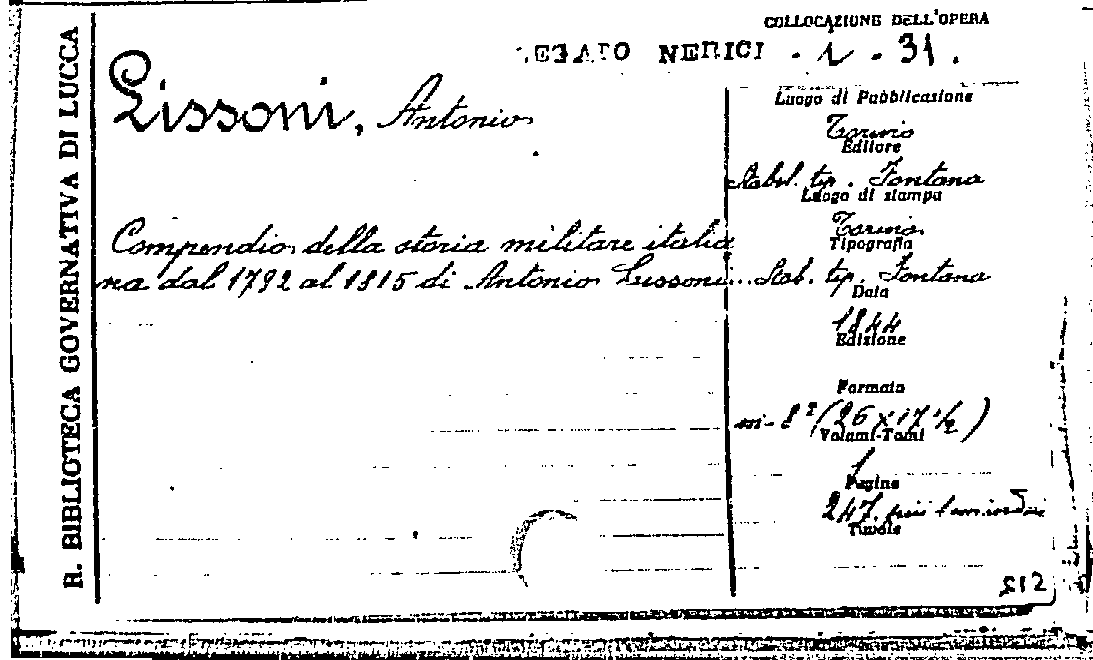 R. BIBLIOTECA GOVERNATIVA DI LUCCA
COLLOCAZIONE DELL'OPERA
LEGATO NERICI - N - 31.
Lissoni, Antonio
Compendio della storia militare italia
na dal 1792 al 1815 di Antonio Lissoni...
Luogo di Pubblicazione
Torino
Editore
Stabil. tip. Fontana
Luogo di stampa
Torino
Tipografia
Stab. tip. Fontana
Data
1844
Edizione
Formato
in-8° (26 x 17 ½)
Volumi-Tomi
1
Pagine
247. più
Tavole
512